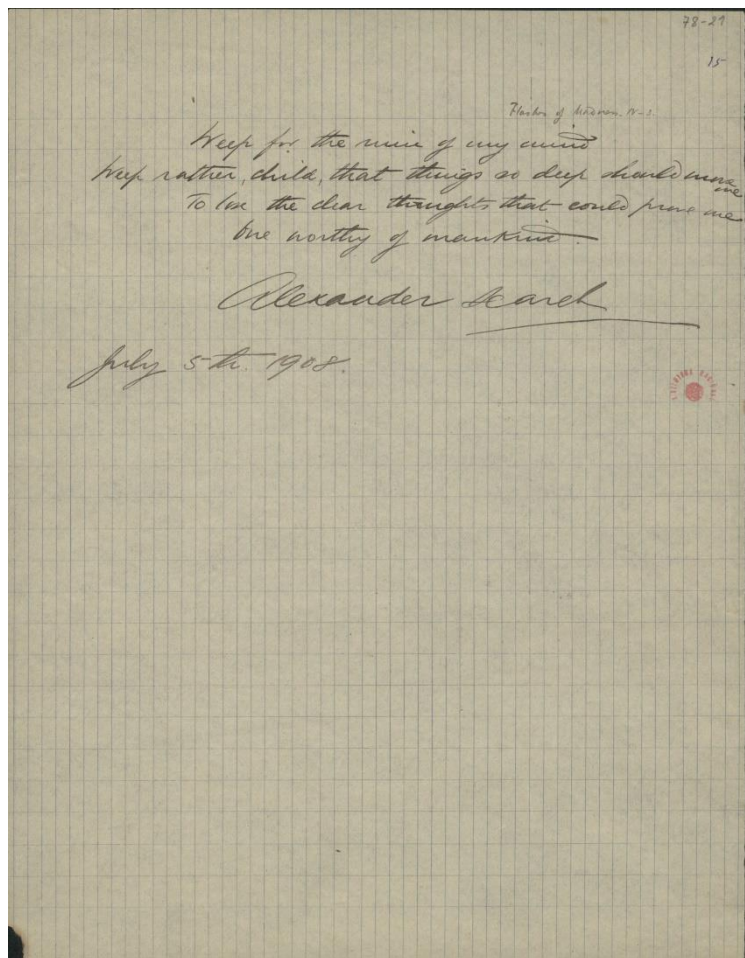 78-21
15
Flashes of Madness. IV-1
Weep for the ruin of my mind
Weep rather, child, that things so deep should move me
To lose the clear thoughts that could prove me
One worthy of mankind.
Alexander Search
July 5th. 1908.